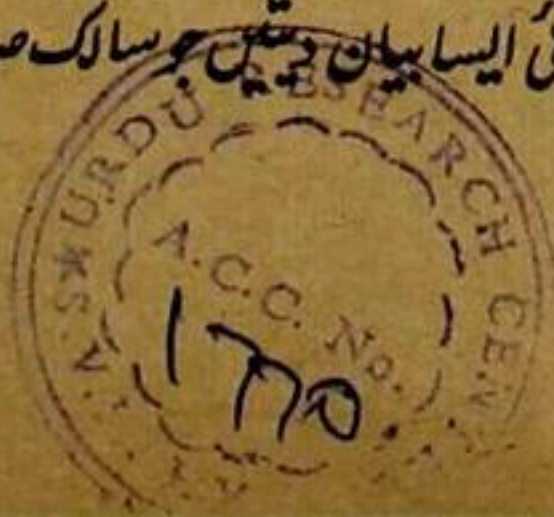 ئی ایسا بیان دیتیں جو سالک ص
URDU RESEARCH CEN
A.C.C. No.